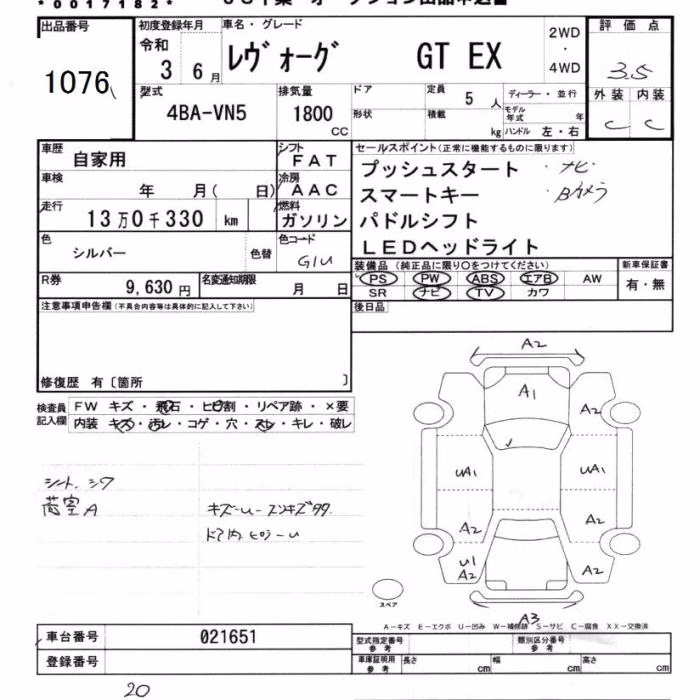 *0017182*
出品番号
1076
初度登録年月
令和
3 6月
車名・グレード
レヴォーグ GT EX
2WD
・
4WD
評価点
3.5
外装 内装
C C
型式
4BA-VN5
排気量
1800
CC
ドア
形状
定員 5人
積載 kg
ディーラー・並行
モデル年式 年
ハンドル 左・右
車歴
自家用
シフト
FAT
車検
年 月( 日)
冷房
AAC
走行
13万0千330 km
燃料
ガソリン
色
シルバー 色替
色コード
G1U
R券
9,630円
名変通知期限
月 日
セールスポイント(正常に機能するものに限ります)
プッシュスタート ・ナビ
スマートキー ・Bカメラ
パドルシフト
LEDヘッドライト
装備品(純正品に限り○をつけてください)
PS PW ABS エアB AW
SR ナビ TV カワ
新車保証書
有・無
後日品
注意事項申告欄(不具合内容等は具体的に記入して下さい)
修復歴 有〔箇所 〕
検査員記入欄
FW キズ・飛石・ヒビ割・リペア跡・×要
内装 キズ・汚レ・コゲ・穴・スレ・キレ・破レ
シート、シワ
荷室A
ドア内
A2
A1
A2
UA1
UA1
A2
A2
U1
A2
A2
A3
スペア
A-キズ E-エクボ U-凹み W-補修跡 S-サビ C-腐食 XX-交換済
車台番号 021651
登録番号
型式指定番号
参考
類別区分番号
参考
車庫証明用
参考
長さ cm
幅 cm
高さ cm
20